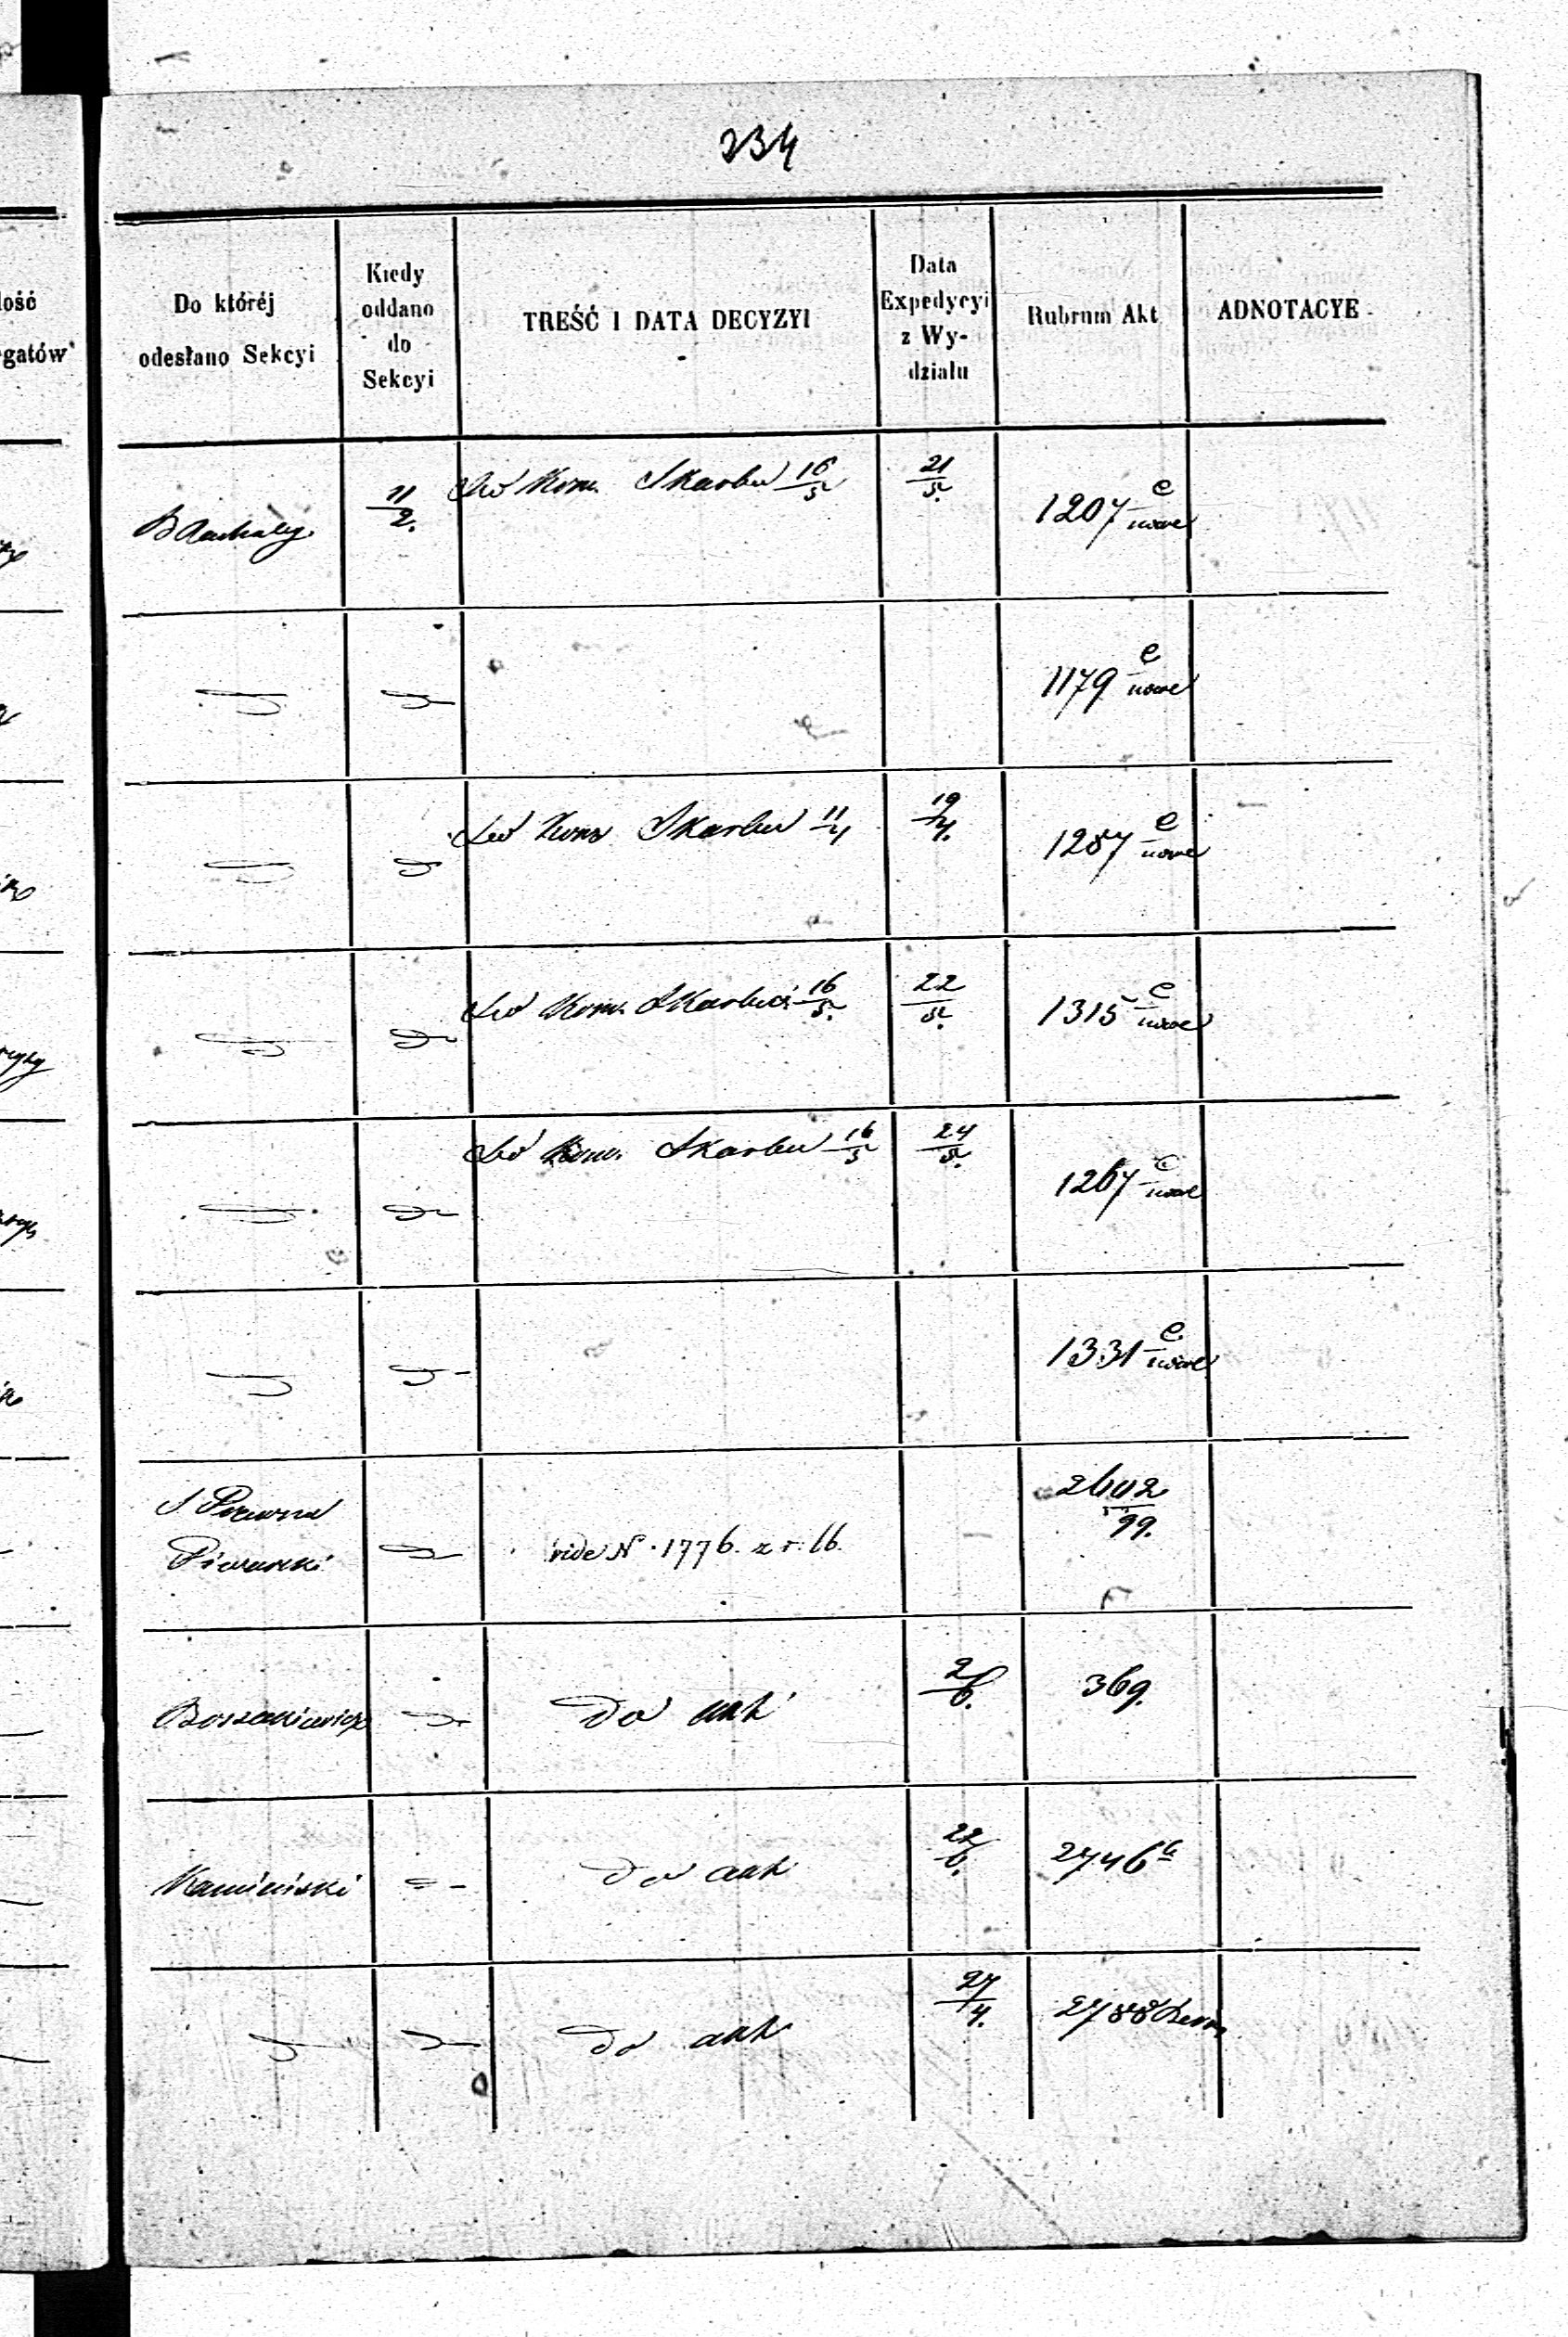 234
Do któréj
odesłano Sekcyi
Kiedy
oddano
do
Sekcyi
TREŚĆ I DATA DECYZYI
Data
Expedycyi
z Wy-
działu
Rubrum Akt
ADNOTACYE
lość
gatów
11/2.
Do Kom. Skarbu 16/5
21/5.
1207 e/nowe
1179 e/nowe
Do Kom Skarbu 11/4
19/4.
1287 e/nowe
Do Kom. Skarbu 16/5.
22/5.
1315 e/nowe
Do Kom. Skarbu 16/5
24/5.
1267 e/nowe
1331 e/nowe
Piwarski
vide N. 1776. z r. 66.
2602/99.
do akt
2/6.
369.
Kamiński
do akt
22/6.
2746 a
do akt
27/4.
2788